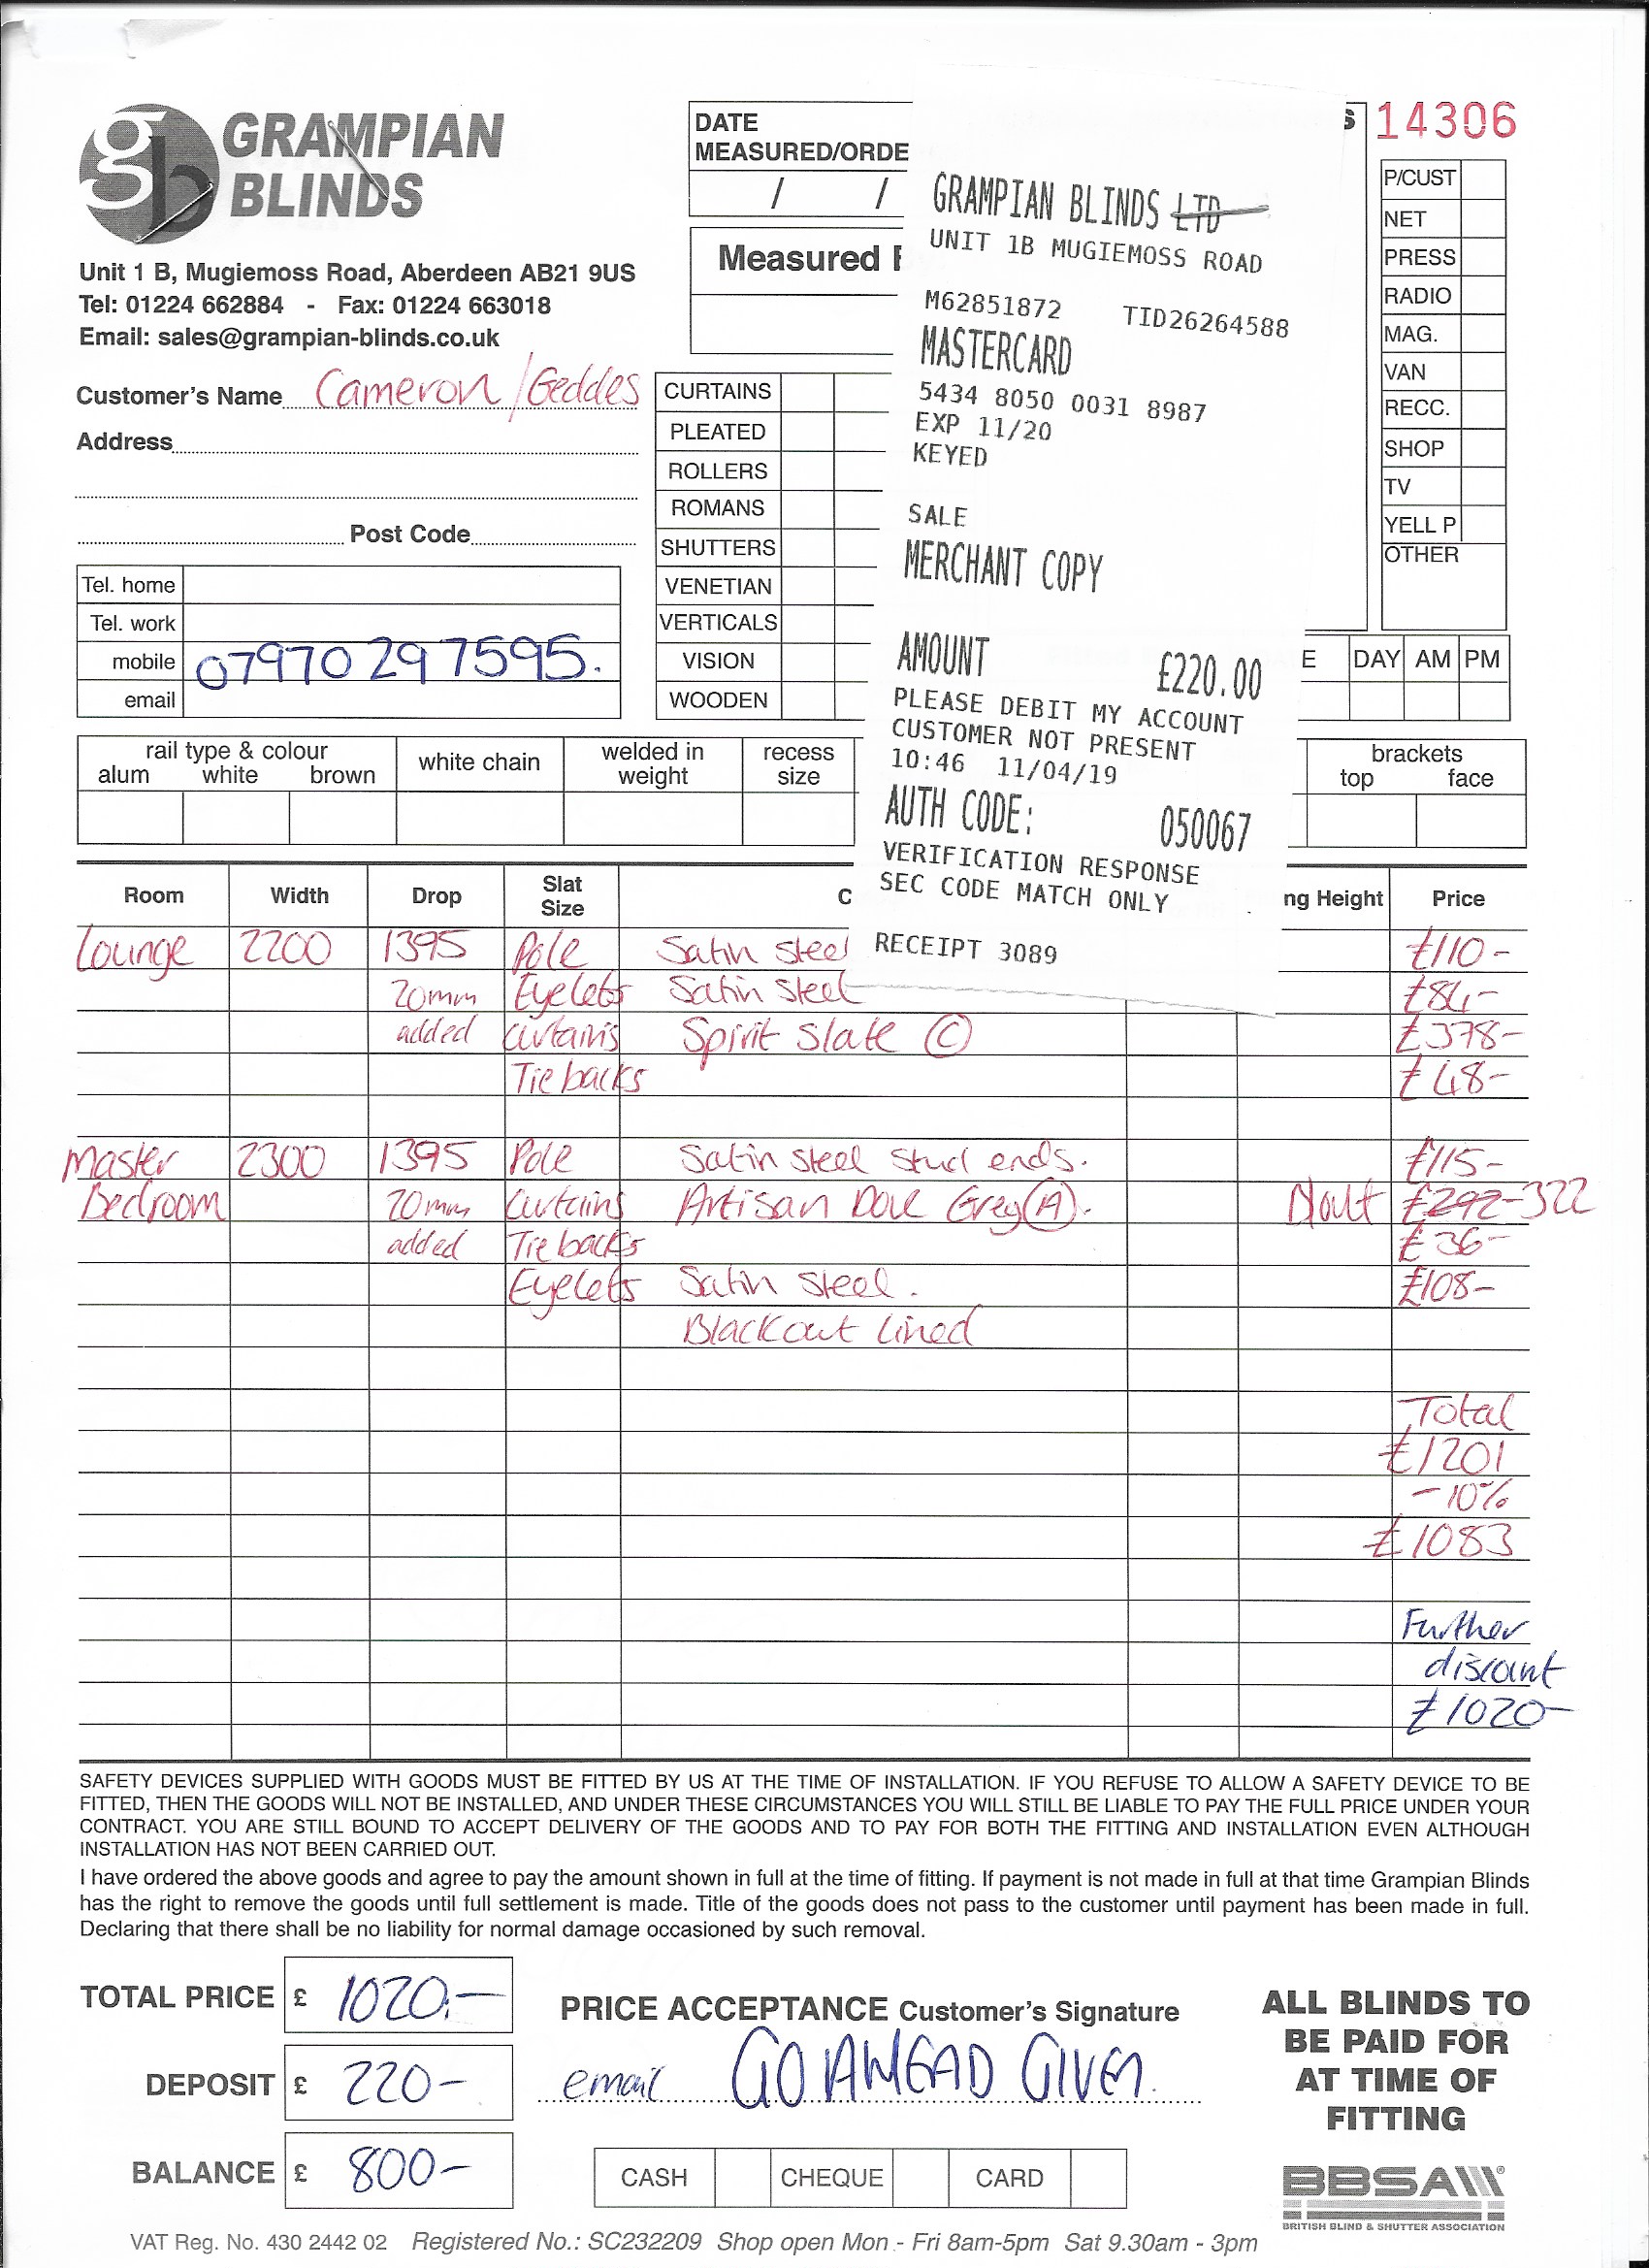 GRAMPIAN
BLINDS
Unit 1 B, Mugiemoss Road, Aberdeen AB21 9US
Tel: 01224 662884 - Fax: 01224 663018
Email: sales@grampian-blinds.co.uk
Customer's Name Cameron/Geddes
Address
Post Code
Tel. home
Tel. work
mobile 07970 297595.
email
DATE
MEASURED/ORDE
/ /
Measured
CURTAINS
PLEATED
ROLLERS
ROMANS
SHUTTERS
VENETIAN
VERTICALS
VISION
WOODEN
GRAMPIAN BLINDS LTD
UNIT 1B MUGIEMOSS ROAD
M62851872 TID26264588
MASTERCARD
5434 8050 0031 8987
EXP 11/20
KEYED
SALE
MERCHANT COPY
AMOUNT £220.00
PLEASE DEBIT MY ACCOUNT
CUSTOMER NOT PRESENT
10:46 11/04/19
AUTH CODE: 050067
VERIFICATION RESPONSE
SEC CODE MATCH ONLY
RECEIPT 3089
S 14306
P/CUST
NET
PRESS
RADIO
MAG.
VAN
RECC.
SHOP
TV
YELL P
OTHER
E DAY AM PM
rail type & colour white chain welded in weight recess size brackets
alum white brown top face
Room Width Drop Slat Size C ng Height Price
Lounge 2200 1395 Pole Satin steel £110-
20mm Eyelets Satin Steel £84-
added Curtains Spirit Slate (C) £378-
Tie backs £48-
Master 2300 1395 Pole Satin steel stud ends. £115-
Bedroom 20mm Curtains Artisan Dove Grey (A). £292-322
added Tie backs £36-
Eyelets Satin Steel. £108-
Blackout Lined
Total
£1201
-10%
£1083
Further
discount
£1020-
SAFETY DEVICES SUPPLIED WITH GOODS MUST BE FITTED BY US AT THE TIME OF INSTALLATION. IF YOU REFUSE TO ALLOW A SAFETY DEVICE TO BE
FITTED, THEN THE GOODS WILL NOT BE INSTALLED, AND UNDER THESE CIRCUMSTANCES YOU WILL STILL BE LIABLE TO PAY THE FULL PRICE UNDER YOUR
CONTRACT. YOU ARE STILL BOUND TO ACCEPT DELIVERY OF THE GOODS AND TO PAY FOR BOTH THE FITTING AND INSTALLATION EVEN ALTHOUGH
INSTALLATION HAS NOT BEEN CARRIED OUT.
I have ordered the above goods and agree to pay the amount shown in full at the time of fitting. If payment is not made in full at that time Grampian Blinds
has the right to remove the goods until full settlement is made. Title of the goods does not pass to the customer until payment has been made in full.
Declaring that there shall be no liability for normal damage occasioned by such removal.
TOTAL PRICE £ 1020.-
DEPOSIT £ 220-
BALANCE £ 800-
PRICE ACCEPTANCE Customer's Signature
email GO AHEAD GIVEN.
CASH CHEQUE CARD
ALL BLINDS TO
BE PAID FOR
AT TIME OF
FITTING
BBSA
BRITISH BLIND & SHUTTER ASSOCIATION
VAT Reg. No. 430 2442 02 Registered No.: SC232209 Shop open Mon - Fri 8am-5pm Sat 9.30am - 3pm